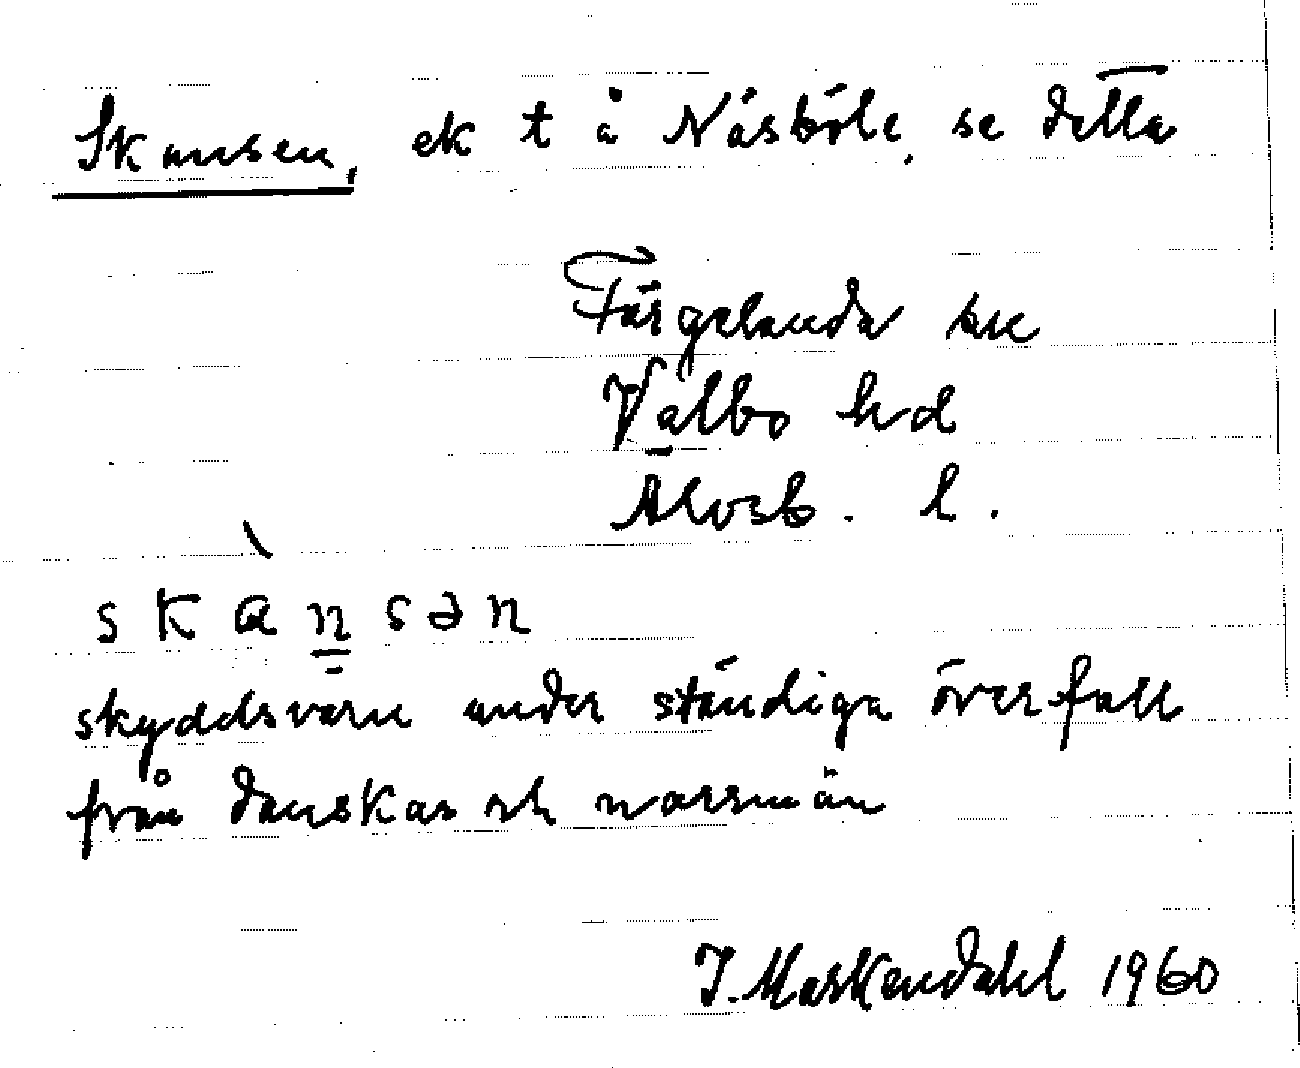 Skansen, ek t å Näsböle, se detta
Färgelanda sn
Valbo hd
Älvsb. l.
skànsən
skyddsvärn under ständiga överfall
från danskar och norrmän
J. Markendahl 1960